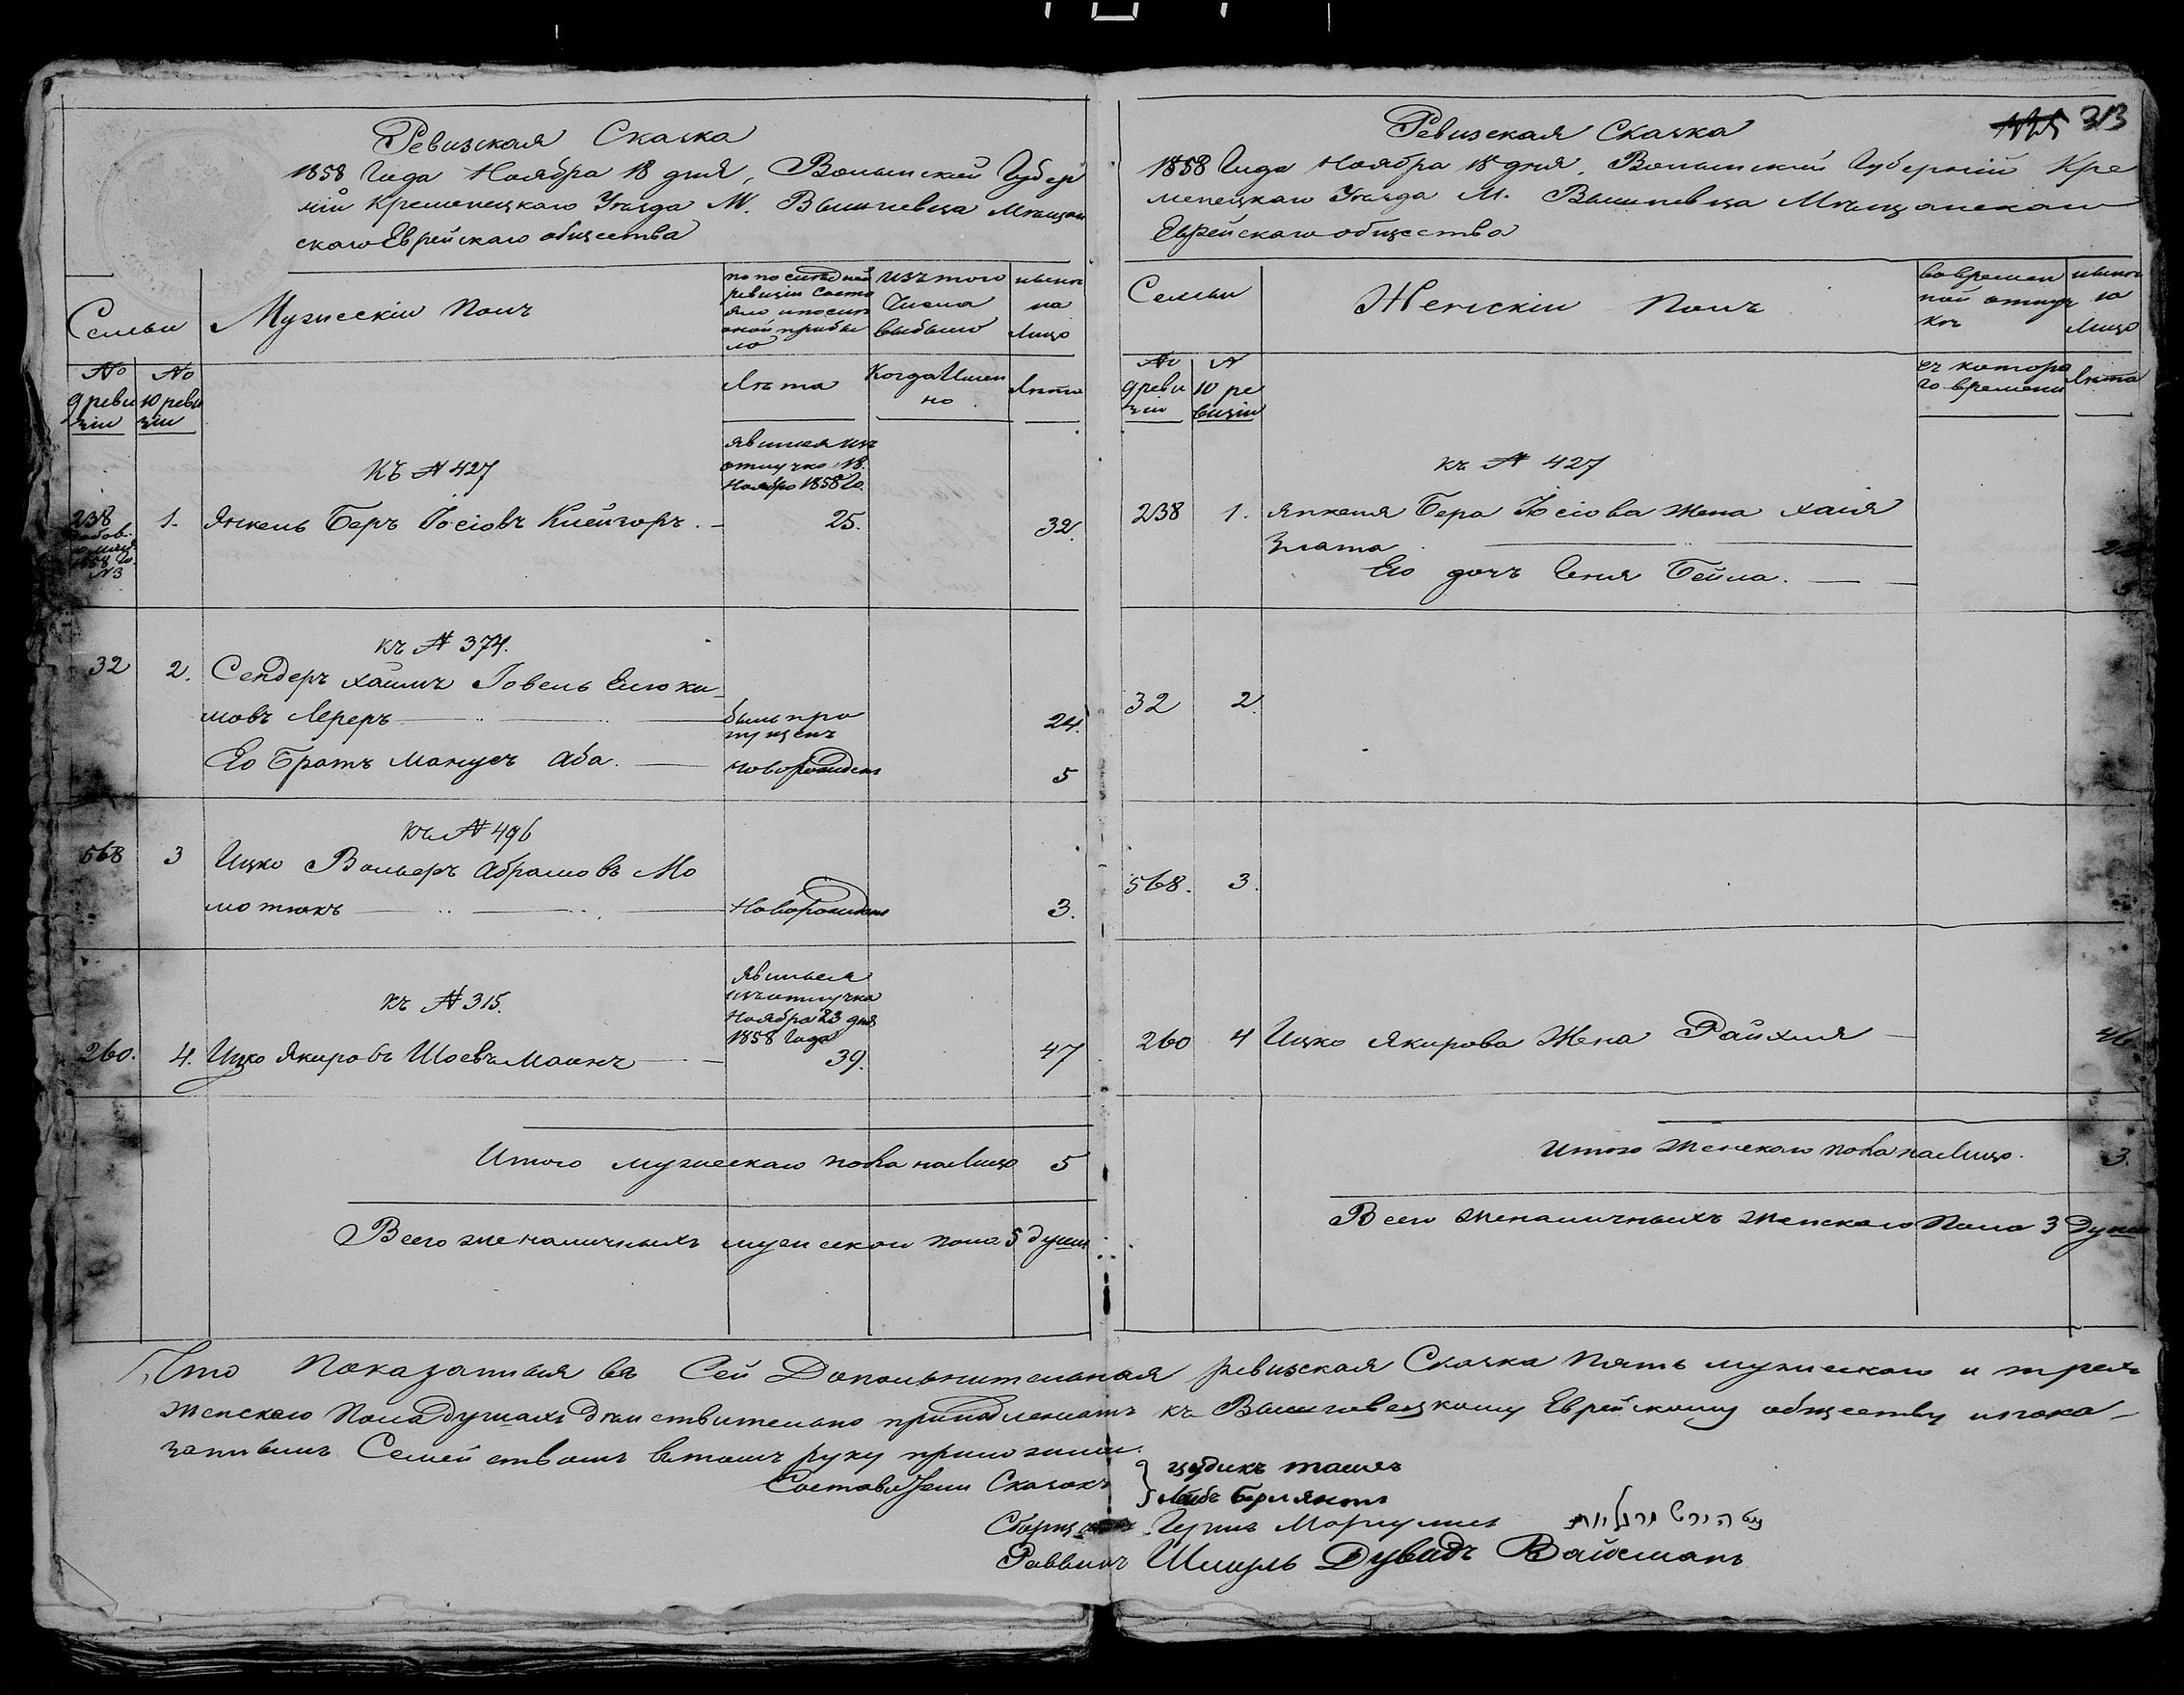 Ревизская Сказка
1858 Года Ноября 18 дня, Волынской Губер
ніи Кременецкаго Уѣзда М. Вишневца Мѣщан
скаго Еврейскаго общества
Семьи
Мужескій Полъ
по послѣдней
ревизіи состо
яло и послѣ
оной прибы
ло
изъ того
числа
выбыло
нынѣ
на
лицо
№
9 реви
зіи
№
10 реви
зіи
Лѣта
Когда Имен
но
Лѣта
Къ № 427
явился изъ
отлучки 18.
Ноября 1858 Го.
238
1858 Го.
№3
1.
Янкель Беръ Іосіовъ Клейнгоръ.
25.
32.
къ № 374.
32
2.
Сендеръ Хаимъ Іовель Елюки
мовъ Лереръ
былъ про
пущенъ
24.
Его Братъ Манусъ Аба.
новорожден
5
къ № 496
568
3
Ицко Вольфъ Абрамовъ Мо
лотокъ
Новорожден
3.
къ № 315.
явился
изъ отлучки
Ноября 23 дня
1858 Года
260.
4.
Ицко Якировъ Шоевъ Маинъ
39.
47
Итого мужескаго пола налицо 5
Всего же наличныхъ мужескаго пола 5 душъ
313
Ревизская Сказка
1858 Года Ноября 18 дня, Волынской Губерніи Кре
менецкаго Уѣзда М. Вишневца Мѣщанскаго
Еврейскаго общества
Семьи
Женскій Полъ
во времен
ной отлуч
кѣ
нынѣ
на
лицо
№
9 реви
зіи
№
10 ре
визіи
съ котора
го времени
Лѣта
къ № 427
238
1.
Янкеля Бера Іосіова Жена Хаія
Злата
Его дочь Геня Бейла.
5
32
2.
568.
3.
260
4
Ицко Якирова Жена Райхля
46.
Итого женскаго пола налицо. 3.
Всего же наличныхъ женскаго Пола 3 Души
Что Показанныя въ Сей Дополнительная ревизская Сказка Пять мужескаго и трехъ
женскаго Пола душахъ дѣйствительно принадлежатъ къ Вишневецкому Еврейскому обществу и пока-
заннымъ Семействамъ въ томъ руку приложили.
Составители Сказокъ
Лейбъ Берлянтъ
Маргулисъ
Раввинъ Шмуль Дувидъ Вайсманъ